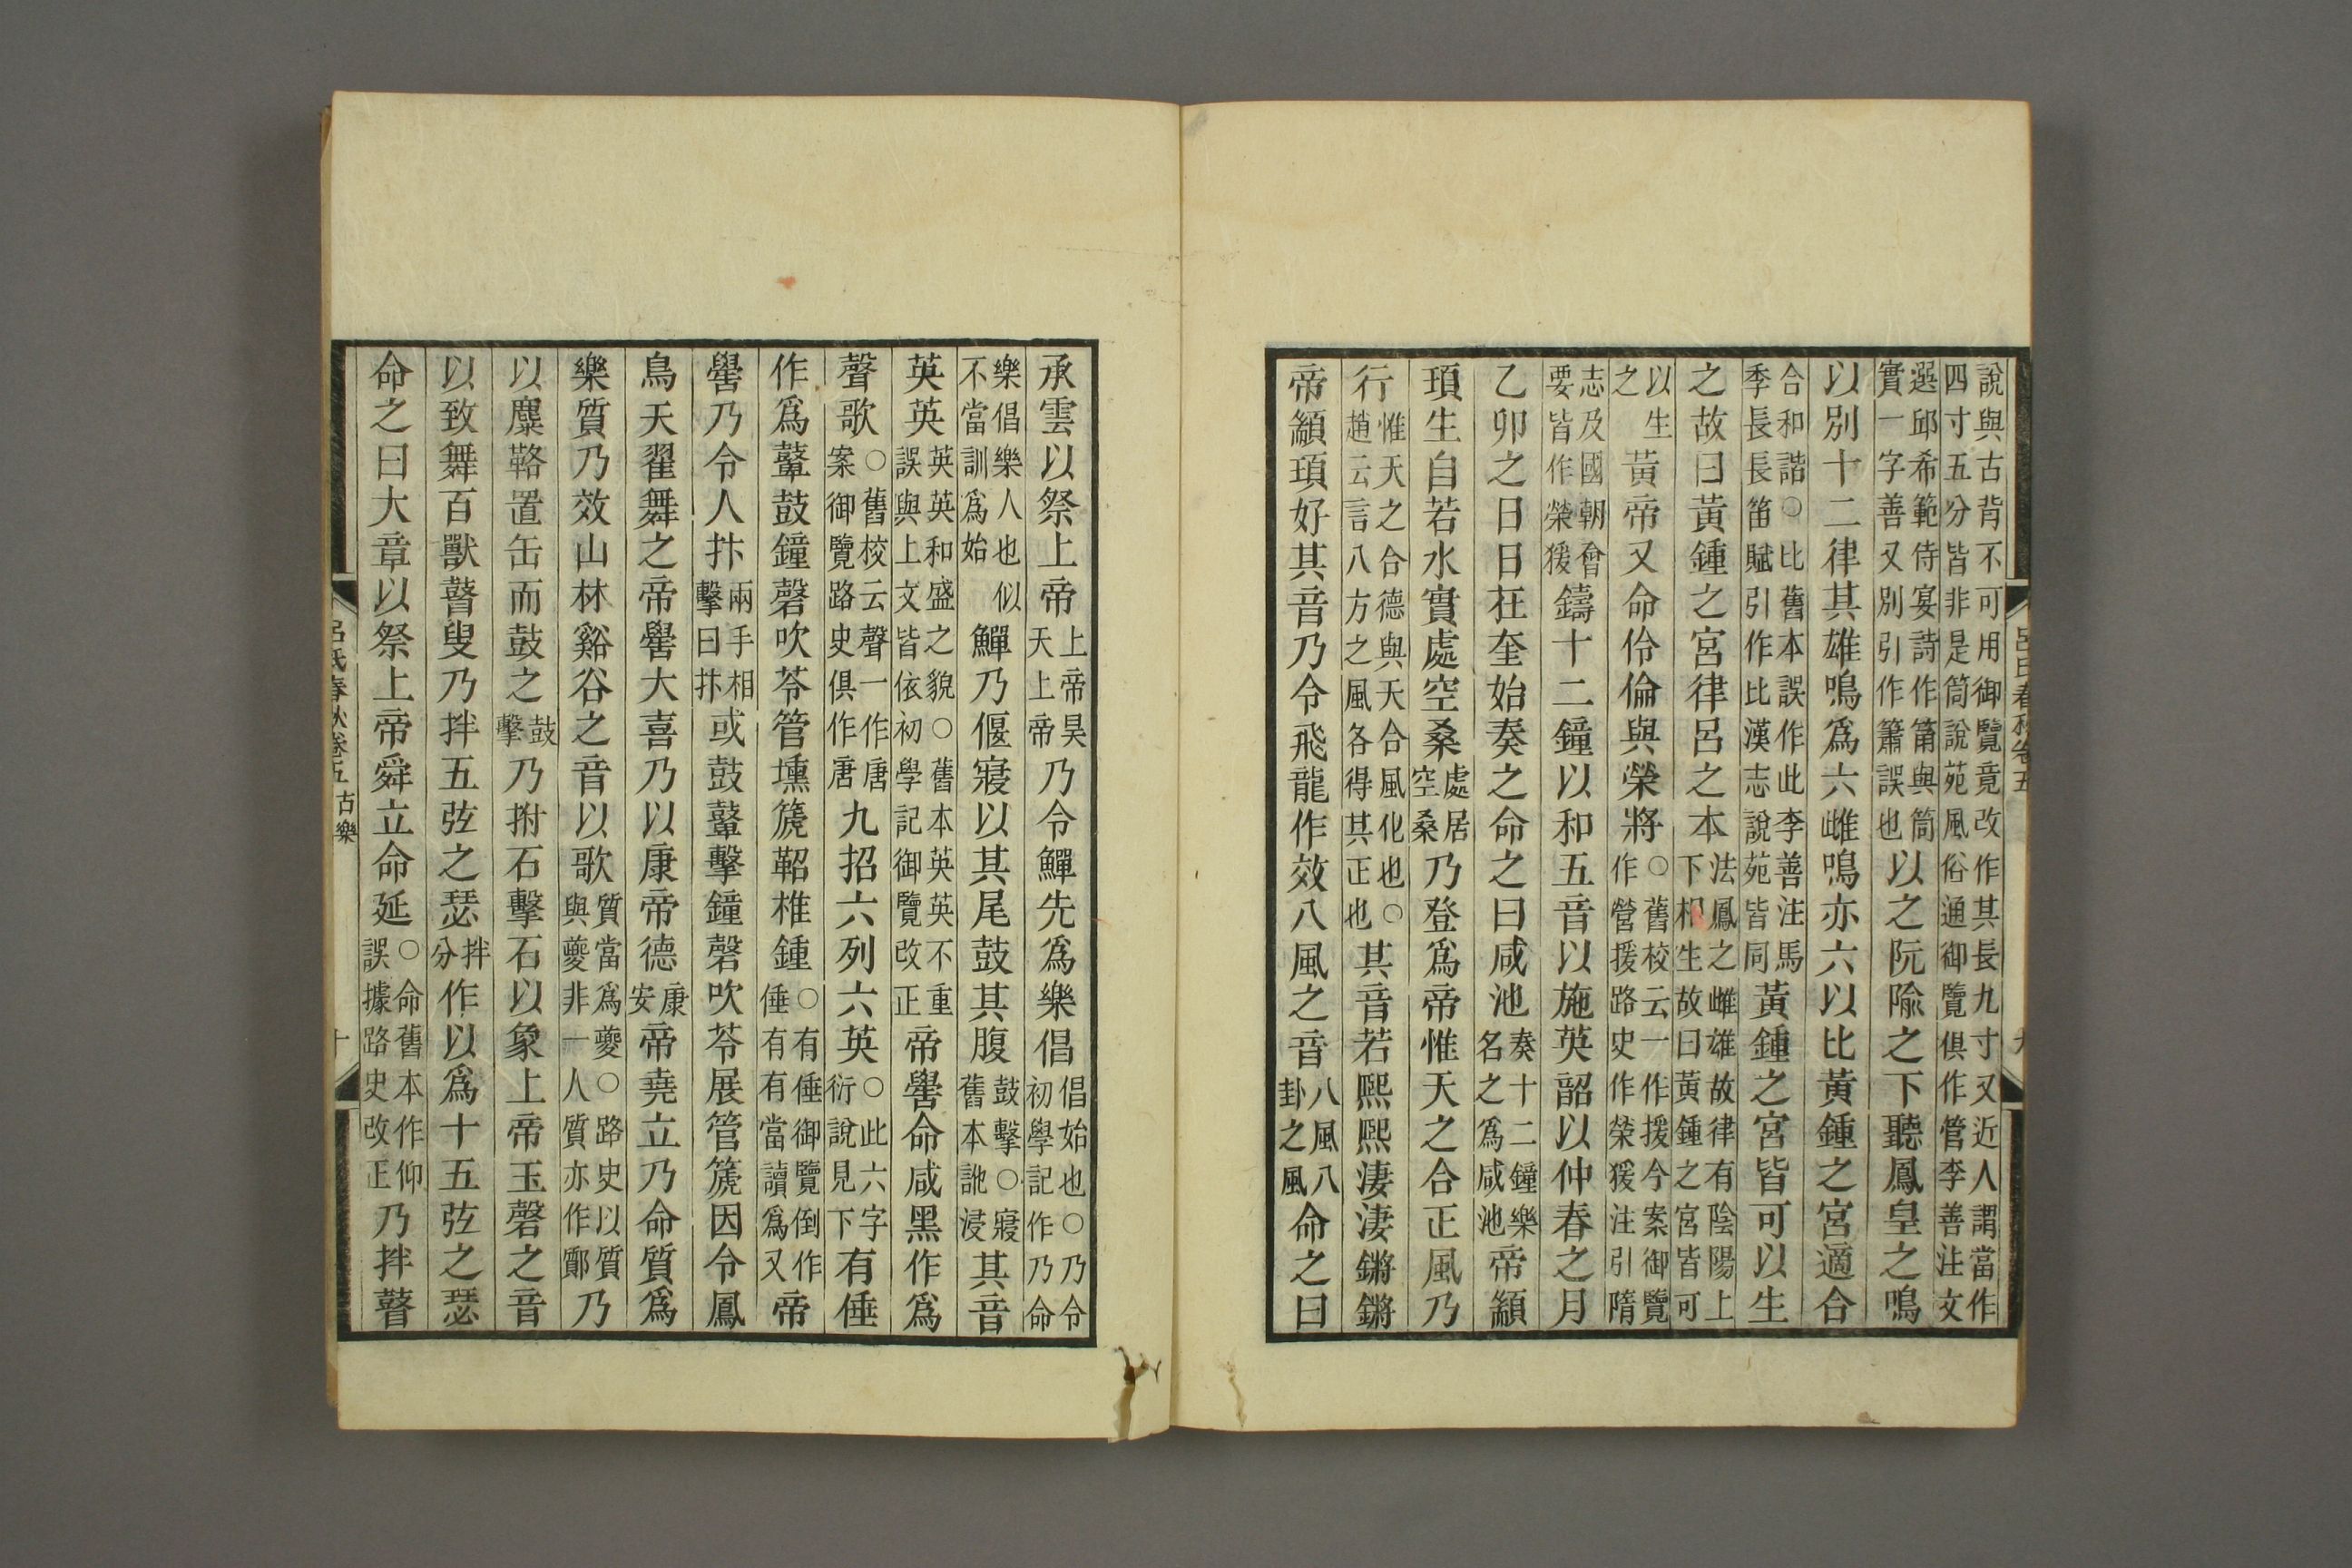 說與古背不可用御覽竟改作其長九寸又近人謂當作四寸五分皆非是筒說苑風俗通御覽俱作管李善注文
選邱希範侍宴詩作筩與筒實一字善又別引作簫誤也以之阮隃之下聽鳳皇之鳴
以別十二律其雄鳴爲六雌鳴亦六以比黃鍾之宮適合
合和諧○比舊本誤作此李善注馬季長長笛賦引作比漢志說苑皆同黃鍾之宮皆可以生
之故曰黃鍾之宮律呂之本法鳳之雌雄故律有陰陽上下相生故曰黃鍾之宮皆可
以生之黃帝又命伶倫與榮將○舊校云一作援今案御覽作營援路史作榮猨注引隋
志及國朝會要皆作榮猨鑄十二鐘以和五音以施英韶以仲春之月
乙卯之日日在奎始奏之命之曰咸池奏十二鐘樂名之爲咸池帝顓
頊生自若水實處空桑處居空桑乃登爲帝惟天之合正風乃
行惟天之合德與天合風化也○趙云言八方之風各得其正也其音若熙熙淒淒鏘鏘
帝顓頊好其音乃令飛龍作效八風之音八風八卦之風命之曰
呂氏春秋卷五 九
承雲以祭上帝上帝昊天上帝乃令鱓先爲樂倡倡始也○乃令初學記作乃命
樂倡樂人也似不當訓爲始鱓乃偃寢以其尾鼓其腹鼓擊○寢舊本訛浸其音
英英英英和盛之貌○舊本英英不重誤與上文皆依初學記御覽改正帝嚳命咸黑作爲
聲歌○舊校云聲一作唐案御覽路史俱作唐九招六列六英○此六字衍說見下有倕
作爲鼙鼓鐘磬吹苓管壎篪鞀椎鍾○有倕御覽倒作倕有有當讀爲又帝
嚳乃令人抃兩手相擊曰抃或鼓鼙擊鐘磬吹苓展管篪因令鳳
鳥天翟舞之帝嚳大喜乃以康帝德康安帝堯立乃命質爲
樂質乃效山林谿谷之音以歌質當爲夔○路史以質與夔非一人質亦作鄮乃
以麋䩭置缶而鼓之鼓擊乃拊石擊石以象上帝玉磬之音
以致舞百獸瞽叟乃拌五弦之瑟拌分作以爲十五弦之瑟
命之曰大章以祭上帝舜立命延○命舊本作仰誤據路史改正乃拌瞽
呂氏春秋卷五 古樂 十